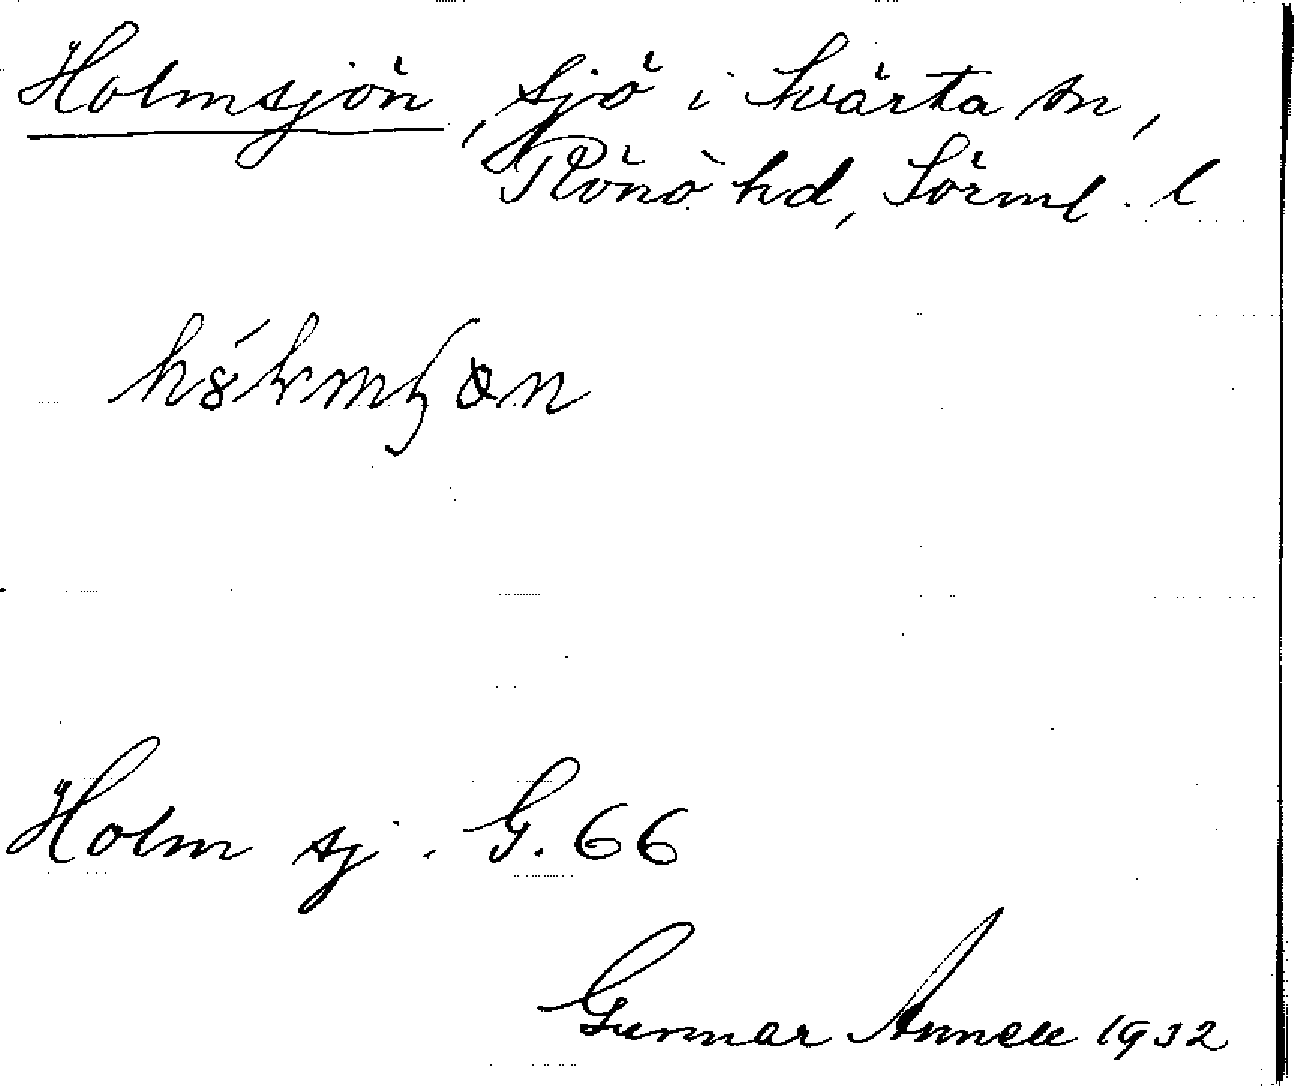 Holmsjön, sjö i Svärta sn,
Rönö hd, Sörml. l
Holm sj. G. 66
Gunnar Annell 1932